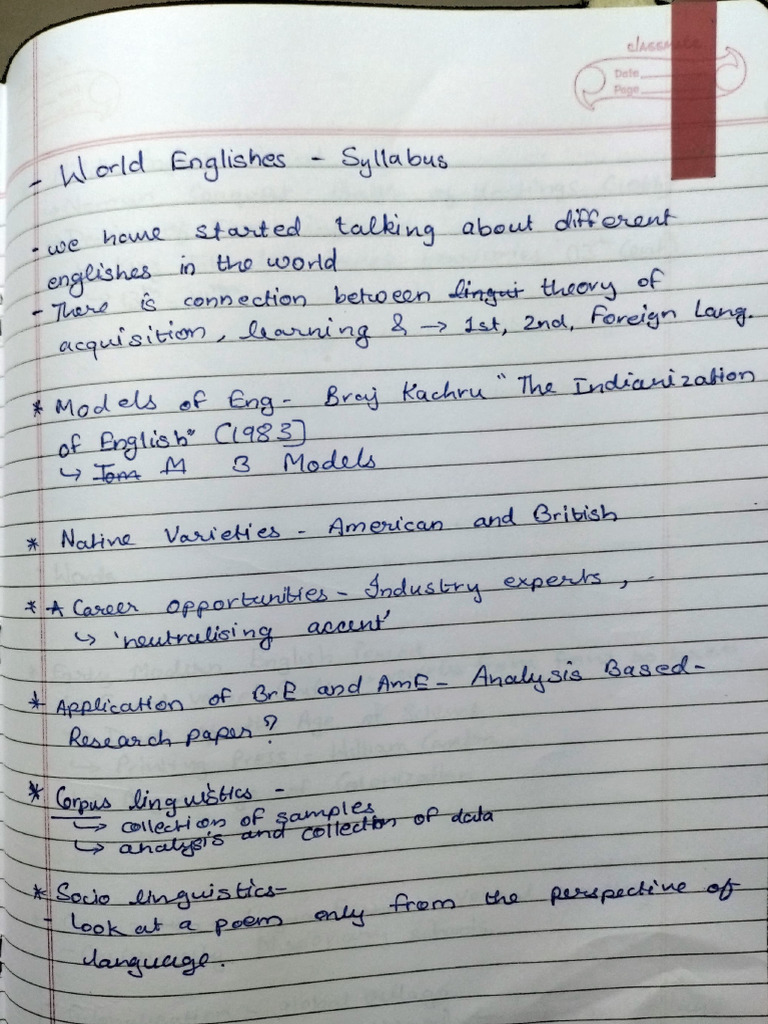 classmate
Date
Page
- World Englishes - Syllabus
- we have started talking about different
englishes in the world
- There is connection between lingui theory of
acquisition, learning & → 1st, 2nd, Foreign Lang.
* Models of Eng - Braj Kachru "The Indianization
of English" (1983]
↳ Tom M 3 Models
* Native Varieties - American and British
* A Career opportunities - Industry experts,
↳ 'neutralising accent'
* Application of BrE and AmE - Analysis Based -
Research paper?
* Corpus linguistics -
↳ collection of samples
↳ analysis and collection of data
* Socio linguistics -
- look at a poem only from the perspective of
language.